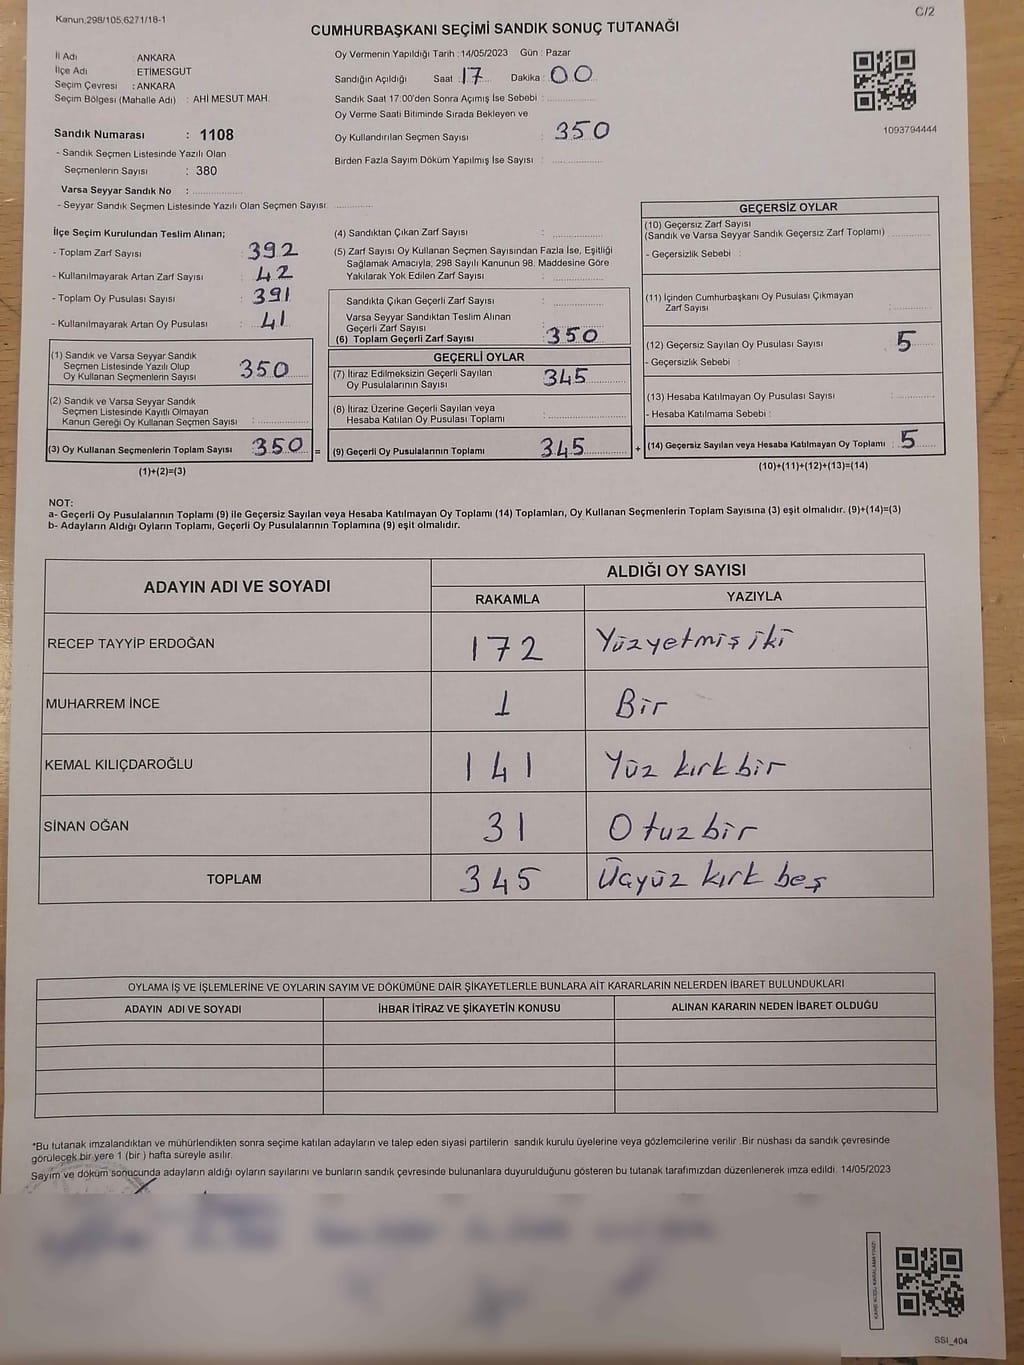 Kanun,298/105,6271/18-1
C/2
CUMHURBAŞKANI SEÇİMİ SANDIK SONUÇ TUTANAĞI
İl Adı : ANKARA
İlçe Adı : ETİMESGUT
Seçim Çevresi : ANKARA
Seçim Bölgesi (Mahalle Adı) : AHİ MESUT MAH.
Sandık Numarası : 1108
- Sandık Seçmen Listesinde Yazılı Olan
Seçmenlerin Sayısı : 380
Varsa Seyyar Sandık No :
- Seyyar Sandık Seçmen Listesinde Yazılı Olan Seçmen Sayısı:
Oy Vermenin Yapıldığı Tarih : 14/05/2023 Gün : Pazar
Sandığın Açıldığı Saat : 17 Dakika : 00
Sandık Saat 17:00'den Sonra Açımış İse Sebebi :
Oy Verme Saati Bitiminde Sırada Bekleyen ve
Oy Kullandırılan Seçmen Sayısı : 350
Birden Fazla Sayım Döküm Yapılmış İse Sayısı :
1093794444
İlçe Seçim Kurulundan Teslim Alınan;
- Toplam Zarf Sayısı : 392
- Kullanılmayarak Artan Zarf Sayısı : 42
- Toplam Oy Pusulası Sayısı : 391
- Kullanılmayarak Artan Oy Pusulası : 41
(1) Sandık ve Varsa Seyyar Sandık
Seçmen Listesinde Yazılı Olup
Oy Kullanan Seçmenlerin Sayısı : 350
(2) Sandık ve Varsa Seyyar Sandık
Seçmen Listesinde Kayıtlı Olmayan
Kanun Gereği Oy Kullanan Seçmen Sayısı :
(3) Oy Kullanan Seçmenlerin Toplam Sayısı : 350 =
(1)+(2)=(3)
(4) Sandıktan Çıkan Zarf Sayısı :
(5) Zarf Sayısı Oy Kullanan Seçmen Sayısından Fazla İse, Eşitliği
Sağlamak Amacıyla; 298 Sayılı Kanunun 98. Maddesine Göre
Yakılarak Yok Edilen Zarf Sayısı :
Sandıkta Çıkan Geçerli Zarf Sayısı :
Varsa Seyyar Sandıktan Teslim Alınan
Geçerli Zarf Sayısı :
(6) Toplam Geçerli Zarf Sayısı : 350
GEÇERLİ OYLAR
(7) İtiraz Edilmeksizin Geçerli Sayılan
Oy Pusulalarının Sayısı : 345
(8) İtiraz Üzerine Geçerli Sayılan veya
Hesaba Katılan Oy Pusulası Toplamı :
(9) Geçerli Oy Pusulalarının Toplamı : 345 +
GEÇERSİZ OYLAR
(10) Geçersiz Zarf Sayısı
(Sandık ve Varsa Seyyar Sandık Geçersiz Zarf Toplamı) :
- Geçersizlik Sebebi :
(11) İçinden Cumhurbaşkanı Oy Pusulası Çıkmayan
Zarf Sayısı :
(12) Geçersiz Sayılan Oy Pusulası Sayısı : 5
- Geçersizlik Sebebi :
(13) Hesaba Katılmayan Oy Pusulası Sayısı :
- Hesaba Katılmama Sebebi :
(14) Geçersiz Sayılan veya Hesaba Katılmayan Oy Toplamı : 5
(10)+(11)+(12)+(13)=(14)
NOT:
a- Geçerli Oy Pusulalarının Toplamı (9) ile Geçersiz Sayılan veya Hesaba Katılmayan Oy Toplamı (14) Toplamları, Oy Kullanan Seçmenlerin Toplam Sayısına (3) eşit olmalıdır. (9)+(14)=(3)
b- Adayların Aldığı Oyların Toplamı, Geçerli Oy Pusulalarının Toplamına (9) eşit olmalıdır.
ADAYIN ADI VE SOYADI ALDIĞI OY SAYISI
RAKAMLA YAZIYLA
RECEP TAYYİP ERDOĞAN 172 Yüzyetmiş iki
MUHARREM İNCE 1 Bir
KEMAL KILIÇDAROĞLU 141 Yüz kırk bir
SİNAN OĞAN 31 Otuz bir
TOPLAM 345 Üçyüz kırk beş
OYLAMA İŞ VE İŞLEMLERİNE VE OYLARIN SAYIM VE DÖKÜMÜNE DAİR ŞİKAYETLERLE BUNLARA AİT KARARLARIN NELERDEN İBARET BULUNDUKLARI
ADAYIN ADI VE SOYADI İHBAR İTİRAZ VE ŞİKAYETİN KONUSU ALINAN KARARIN NEDEN İBARET OLDUĞU
*Bu tutanak imzalandıktan ve mühürlendikten sonra seçime katılan adayların ve talep eden siyasi partilerin sandık kurulu üyelerine veya gözlemcilerine verilir .Bir nüshası da sandık çevresinde
görülecek bir yere 1 (bir ) hafta süreyle asılır.
Sayım ve döküm sonucunda adayların aldığı oyların sayılarını ve bunların sandık çevresinde bulunanlara duyurulduğunu gösteren bu tutanak tarafımızdan düzenlenerek imza edildi. 14/05/2023
KARE KODU KARALAMAYINIZ!
SSI_404